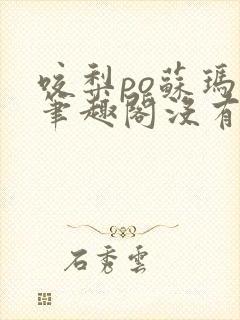 咬梨po蘇瑪
筆趣閣沒有
石秀雲